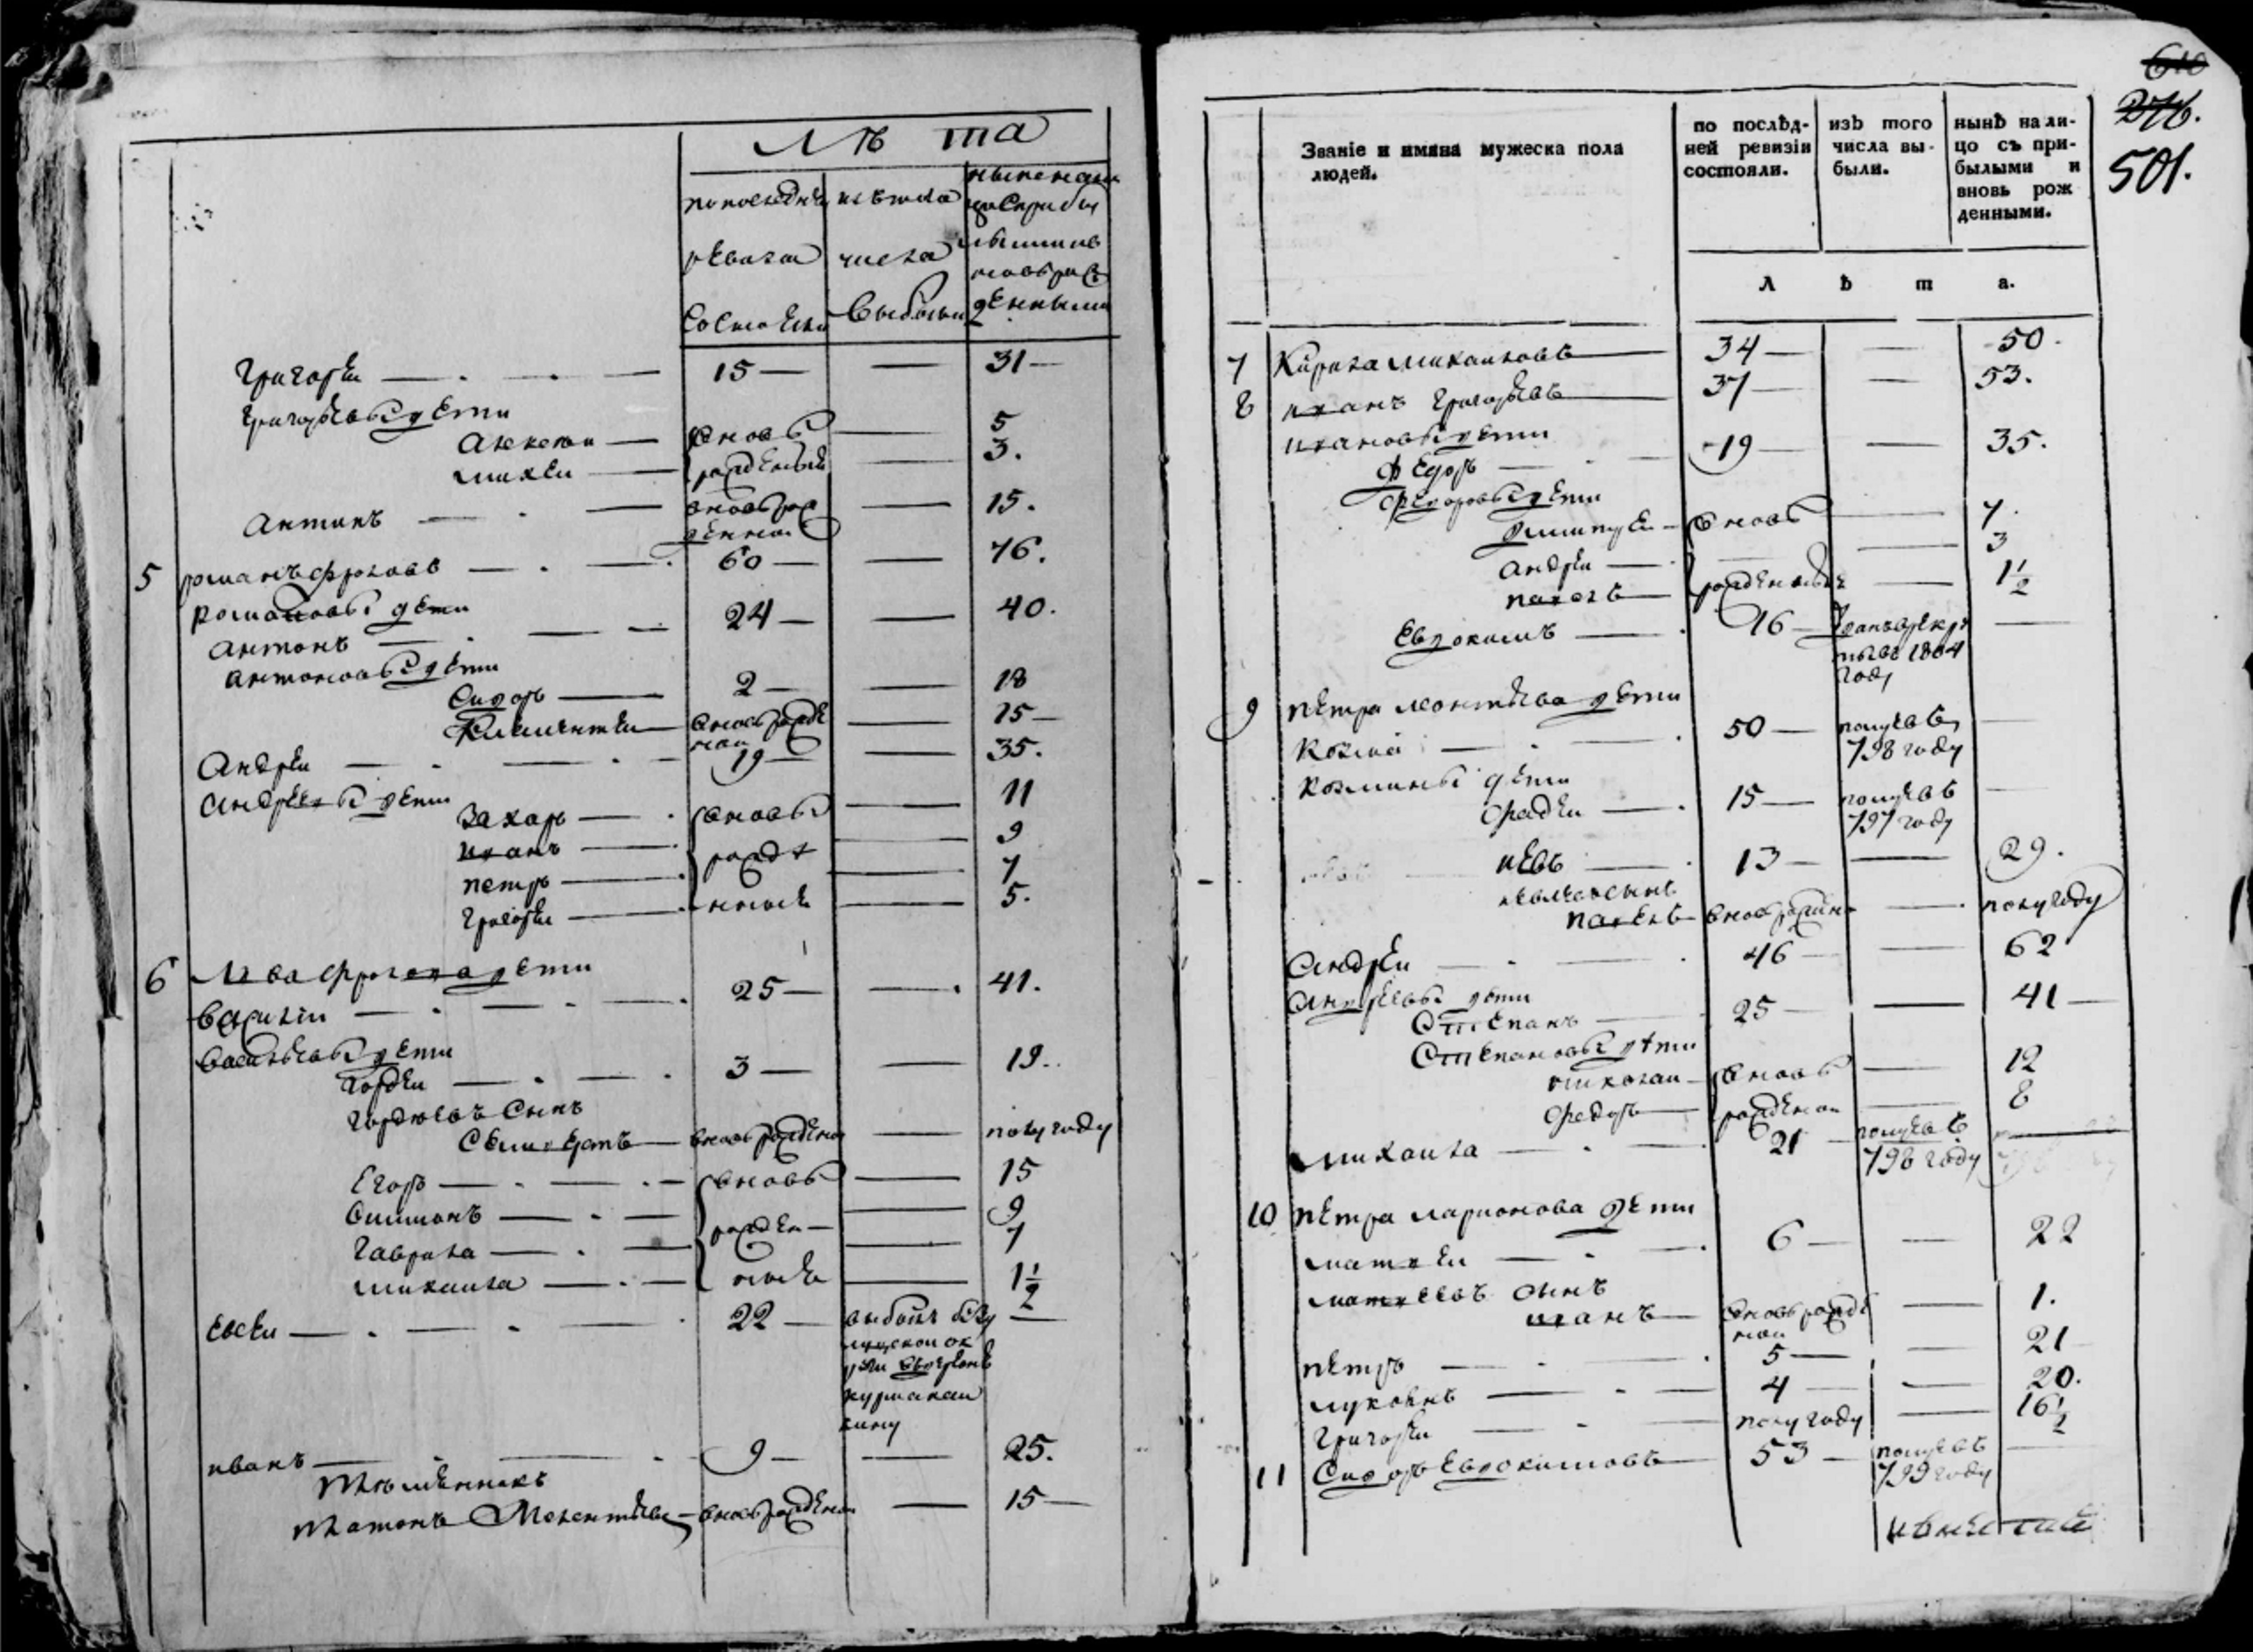 Лѣта
по последней
ревизіи
Состоели
изъ того
числа
Выбыли
ныне на ли
цо Сприбы
лыми и в
новь рож
денными
Григореи — 15 — — 31 —
Григорьевы дети
Алексеи — вновь — 5
Михеи — рожденные — 3.
Антипъ — вновь рож — 15.
денной
5 романъ фроловъ — 60 — — 76.
Романовы дети
Антонъ — 24 — — 40.
Антоновы дети
Сидоръ — 2 — — 18
Климентеи — вновь рожде — 15 —
ной
Андреи — 19 — — 35.
Андреевы дети
Захаръ — вновь — 11
иванъ — рожде — 9
петръ — 7
Григореи — нные — 5.
6 Лва фролова дети
Василіи — 25 — — 41.
Васильевы дети
Гордеи — 3 — — 19.
Гордеевъ Сынъ
вновь рожденной — полугоду
Егоръ — вновь — 15
9
Гаврила — рожден — 7
михаила — ные — 1½
Евсеи — 22 — выбылъ
иванъ — 9 — — 25.
племенникъ
платонъ — вновь рожденной — 15 —
610
276.
501.
Званіе и имяна мужеска пола
людей.
по послѣд-
ней ревизіи
состояли.
изъ того
числа вы-
были.
нынѣ на ли-
цо съ при-
былыми и
вновь рож
денными.
л ѣ т а.
7 Кирила михаиловъ — 34 — — 50.
8 иванъ Григорьевъ — 37 — — 53.
ивановы дети
Федоръ — 19 — — 35.
Федоровы дети
Дмитреи — вновь — 7.
Андреи — 3
павелъ — рожденные — 1½
Евдокимъ — 16 — въ рекру
ты въ 1804
году
9 петра леонтьева дети
Козма — 50 — померъ въ
798 году
Козмины дети
Фадеи — 15 — померъ въ
797 году
13 — — 29.
сынъ
павелъ — вновь рожден — полугоду
Андреи — 46 — — 62
Андреевы дети
Степанъ — 25 — — 41 —
Степановы дети
николаи — вновь — 12
Федоръ — рожденои — 8
михаила — 21 — померъ въ
798 году
10 петра ларионова дети
матвеи — 6 — — 22
матвеевъ сынъ
иванъ — вновь рожде — 1.
ной
петръ — 5 — — 21
лукоянъ — 4 — — 20.
Григореи — полугоду — 16½
11 Сидоръ Евдокимовъ — 53 — померъ въ
799 году